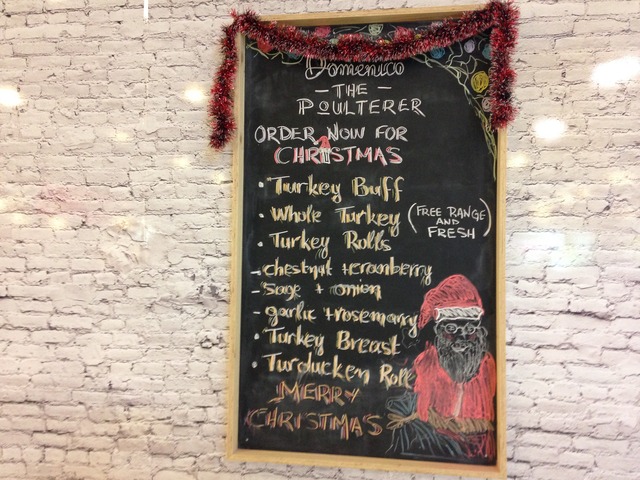 Domenico
- THE -
POULTERER
ORDER NOW FOR
CHRISTMAS
• Turkey Buff
• Whole Turkey (FREE RANGE AND FRESH)
• Turkey Rolls
- chestnut + cranberry
- Sage + onion
- garlic + rosemarry
• Turkey Breast
• Turducken Roll
MERRY
CHRISTMAS